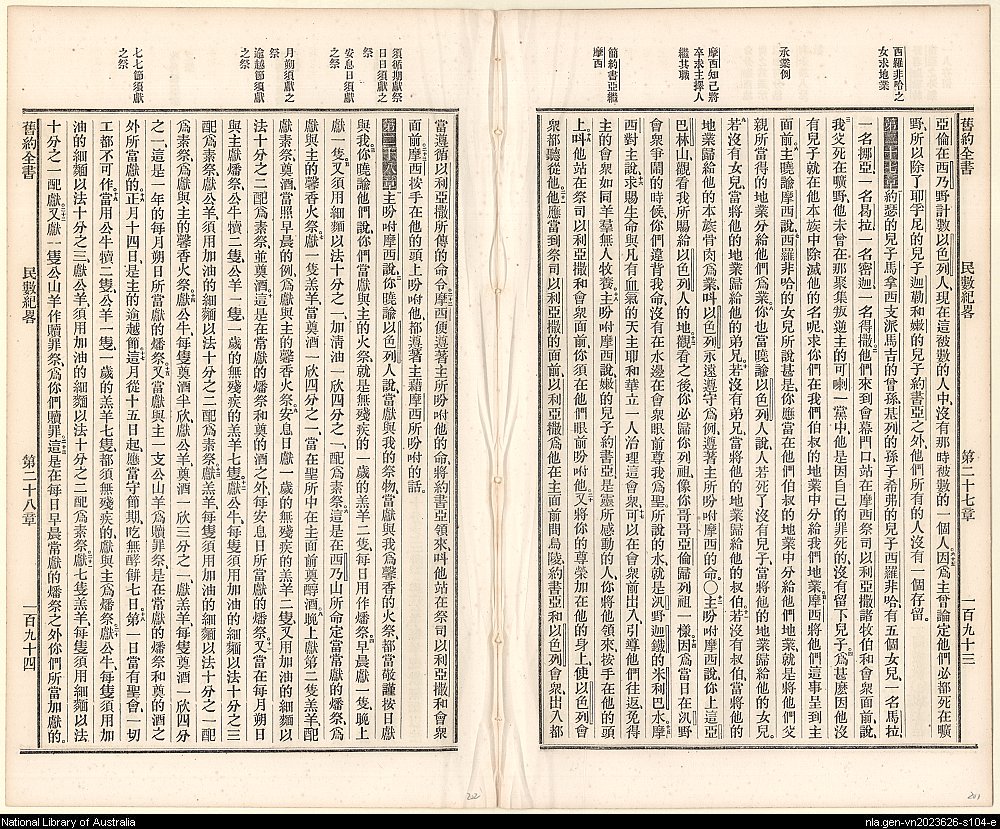 西羅非哈之
女求地業
承業例
摩西知己將
卒求主擇人
繼其職
簡約書亞繼
摩西
舊約全書 民數紀畧 第二十七章 一百九十三
亞倫在西乃野計數以色列人、現在這被數的人中、沒有那時被數的一個人、因爲主曾論定他們必都死在曠
野、所以除了耶孚尼的兒子迦勒和嫩的兒子約書亞之外、他們所有的人、沒有一個存留。
第二十七章 約瑟的兒子馬拿西支派馬吉的曾孫基列的孫子希弗的兒子西羅非哈、有五個女兒、一名馬拉
一名挪亞、一名曷拉、一名密迦、一名得撒、他們來到會幕門口、站在摩西祭司以利亞撒諸牧伯和會衆面前、說、
我父死在曠野、他未曾在那聚集叛逆主的可喇一黨中、他是因自己的罪死的、沒有留下兒子、爲甚麼因他沒
有兒子就在他本族中除滅他的名呢、求你們在我們伯叔的地業中分給我們地業、摩西將他們這事呈到主
面前、主曉諭摩西說、西羅非哈的女兒所說甚是、你應當在他們伯叔的地業中分給他們地業、就是將他們父
親所當得的地業分給他們爲業、你也當曉諭以色列人說、人若死了沒有兒子、當將他的地業歸給他的女兒。
若沒有女兒、當將他的地業歸給他的弟兄、若沒有弟兄、當將他的地業歸給他的叔伯、若沒有叔伯、當將他的
地業歸給他的本族骨肉爲業、叫以色列永遠遵守爲例、遵著主所吩咐摩西的命、○主吩咐摩西說、你上這亞
巴林山、觀看我所賜給以色列人的地、觀看之後、你必歸你列祖、像你哥哥亞倫歸列祖一樣、因爲當日在汎野
會衆爭鬧的時候、你們違背我命、沒有在水邊在會衆眼前尊我爲聖、所說的水、就是汎野迦鐵的米利巴水、摩
西對主說、求賜生命與凡有血氣的天主耶和華、立一人治理這會衆、可以在會衆前出入、引導他們往返、免得
主的會衆如同羊羣無人牧養、主吩咐摩西說、嫩的兒子約書亞是靈所感動的人、你將他領來、按手在他的頭
上、叫他站在祭司以利亞撒和會衆面前、你須在他們眼前吩咐他、又將你的尊榮加在他的身上、使以色列會
衆都聽從他、他應當到祭司以利亞撒的面前、以利亞撒當爲他在主面前問烏陵、約書亞和以色列會衆、出入都
須循期獻祭
日日須獻之
祭
安息日須獻
之祭
月朔須獻之
祭
逾越節須獻
之祭
七七節須獻
之祭
當遵循以利亞撒所傳的命令、摩西便遵著主所吩咐他的命、將約書亞領來、叫他站在祭司以利亞撒和會衆
面前、摩西按手在他的頭上、吩咐他、都遵著主藉摩西所吩咐的話。
第二十八章 主吩咐摩西說、你曉諭以色列人說、當獻與我的祭物、當獻與我爲馨香的火祭、都當敬謹按日獻
與我、你曉諭他們說、你們當獻與主的火祭、就是無殘疾的一歲的羔羊二隻、每日用作燔祭、早晨獻一隻、晚上
獻一隻、又須用細麵以法十分之一、加清油一欣四分之一、配爲素祭、這是在西乃山所命定當常獻的燔祭、爲
獻與主的馨香火祭、獻一隻羔羊、當奠酒一欣四分之一、當在聖所中在主面前奠醇酒、晚上獻第二隻羔羊、配
獻素祭、奠酒、當照早晨的例、爲獻與主的馨香火祭、安息日獻一歲的無殘疾的羔羊二隻、又用加油的細麵以
法十分之二、配爲素祭、並奠酒、這是在常獻的燔祭和奠的酒之外、每安息日所當獻的燔祭、又當在每月朔日
與主獻燔祭、公牛犢二隻、公羊一隻、一歲的無殘疾的羔羊七隻、獻公牛、每隻須用加油的細麵以法十分之三
配爲素祭、獻公羊、須用加油的細麵以法十分之二、配爲素祭、獻羔羊、每隻須用加油的細麵以法十分之一、配
爲素祭、爲獻與主的馨香火祭、獻公牛、每隻奠酒半欣、獻公羊、奠酒一欣三分之一、獻羔羊、每隻奠酒一欣四分
之一、這是一年的每月朔日所當獻的燔祭、又當獻與主一支公山羊爲贖罪祭、是在常獻的燔祭和奠的酒之
外所當獻的、正月十四日是主的逾越節、這月從十五日起、應當守節期、吃無酵餅七日、第一日當有聖會、一切
工都不可作、當用公牛犢二隻、公羊一隻、一歲的羔羊七隻、都須無殘疾的、獻與主爲燔祭、獻公牛、每隻須用加
油的細麵以法十分之三、獻公羊、須用加油的細麵以法十分之二、配爲素祭、獻七隻羔羊、每隻須用細麵以法
十分之一配獻、又獻一隻公山羊作贖罪祭、爲你們贖罪、這是在每日早晨常獻的燔祭之外、你們所當加獻的。
舊約全書 民數紀畧 第二十八章 一百九十四
202
201
National Library of Australia
nla.gen-vn2023626-s104-e